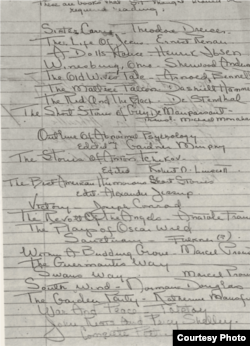 These are books that
required reading.
Sister Carrie Theodore Dreiser
The Life of Jesus Ernest Renan
A Dolls House Henrik Ibsen
Winesburg, Ohio Sherwood Anderson
The Old Wives Tale Arnold Bennett
The Maltese Falcon Dashiell Hammett
The Red And The Black De Stendhal
The Short Stories of Guy De Maupassant
Michael
Outline Of Abnormal Psychology
Edited Gardner Murphy
The Stories of Anton Tchekov
Edited Robert N. Linscott
The Best American Humorous Short Stories
edit. Alexander Jessup
Victory Joseph Conrad
The Revolt Of the Angels Anatole France
The Plays of Oscar Wilde
Sanctuary
Within A Budding Grove Marcel
The Guermantes Way
Swans Way Marcel
South Wind - Norman Douglas
The Garden Party - Katherine
War And Peace - Tolstoy
John Keats And Percy Shelley -
Complete
Courtesy Photo